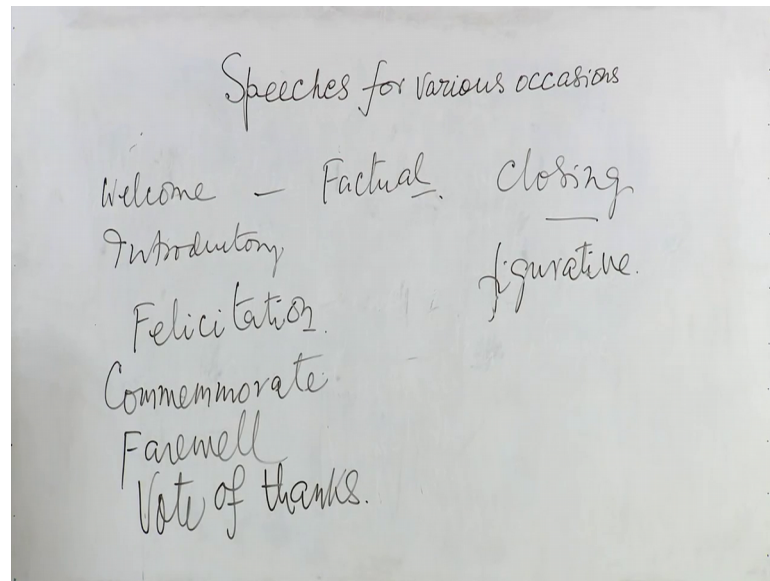 Speeches for various occasions
Welcome – Factual. Closing
Introductory
figurative.
Felicitation.
Commemmorate
Farewell
Vote of thanks.